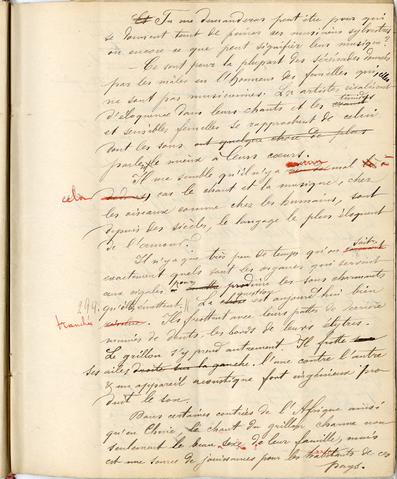 Tu me demanderas peut être pour qui
se donnent tant de peines ces musiciens sylvestres
ou encore ce que peut signifier leur musique?
- Ce sont pour la plupart des sérénades données
par les mâles en l'honneur des femelles qui elles
ne sont pas musiciennes. Les artistes rivalisent
d'éloquence dans leurs chants et les timides
et sensibles femelles se rapprochent de celui
dont les sons ont quelque chose de plus
parlent le mieux à leurs cœurs.
Il me semble qu'il n'y a aucun mal à
cela, car le chant et la musique, chez
les oiseaux comme chez les humains, sont
depuis des siècles, le langage le plus éloquent
de l'amour.
Il n'y a que très peu de temps qu'on sait
exactement quels sont les organes qui servent
aux cigales pour produire les sons charmants
294 qu'elles émettent. La question est aujourd'hui bien
tranchée. Ils frottent avec leurs pattes de derrière
munies de dents, les bords de leurs élytres.
Le grillon s'y prend autrement. Il frotte
ses ailes droite sur la gauche, l'une contre l'autre
& un appareil acoustique fort ingénieux pro
duit le son.
Dans certaines contrées de l'Afrique ainsi
qu'en Chine, le chant du grillon charme non
seulement le beau sexe de leur famille, mais
est une source de jouissances pour les habitants de ces
pays.